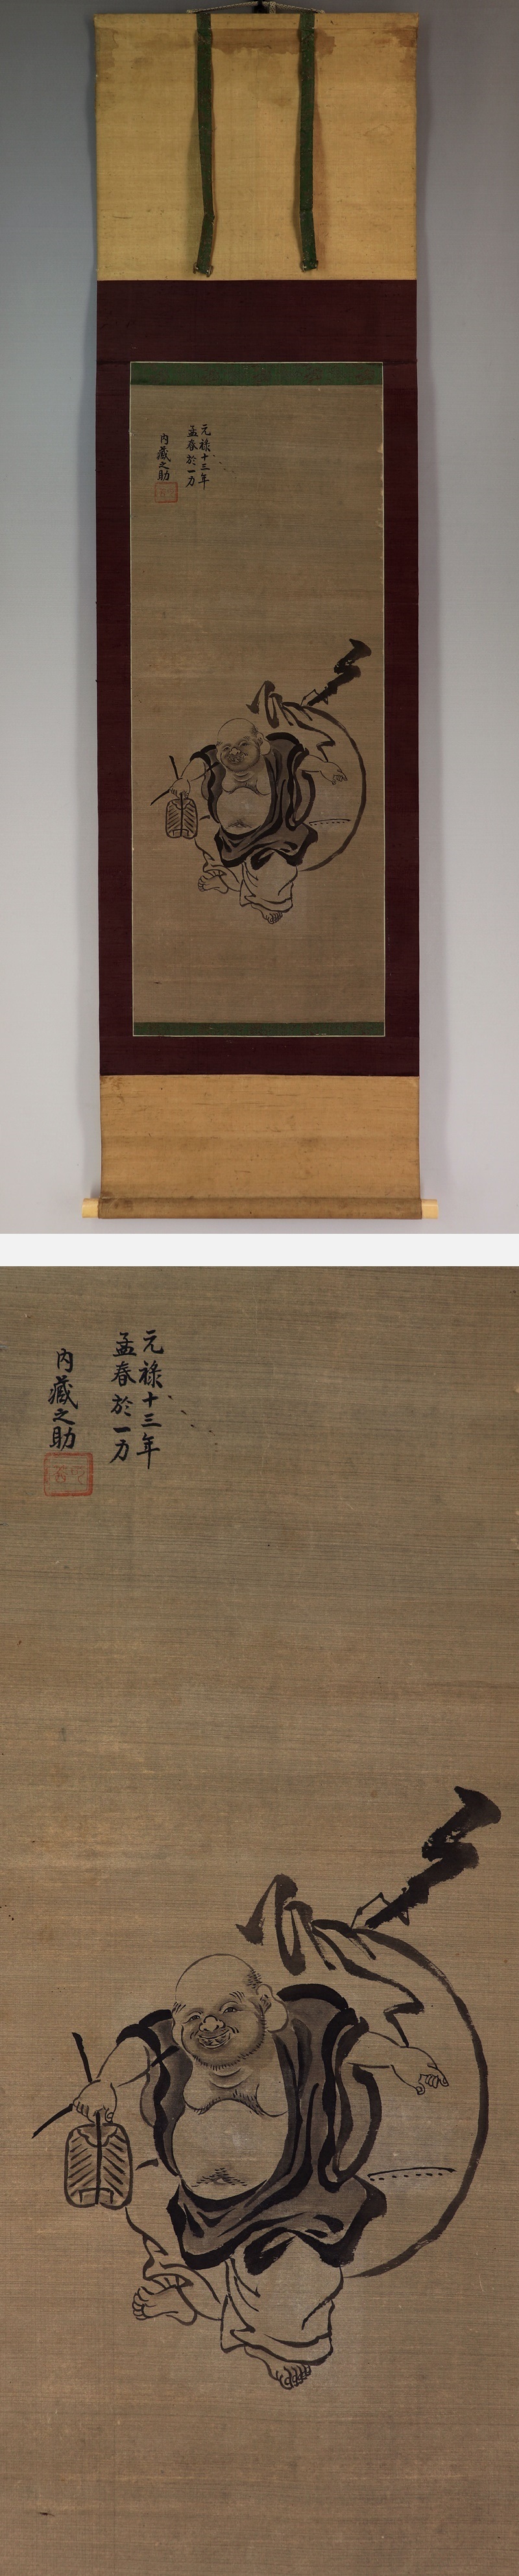 元禄十三年
孟春於一力
内藏之助
元禄十三年
孟春於一力
内藏之助